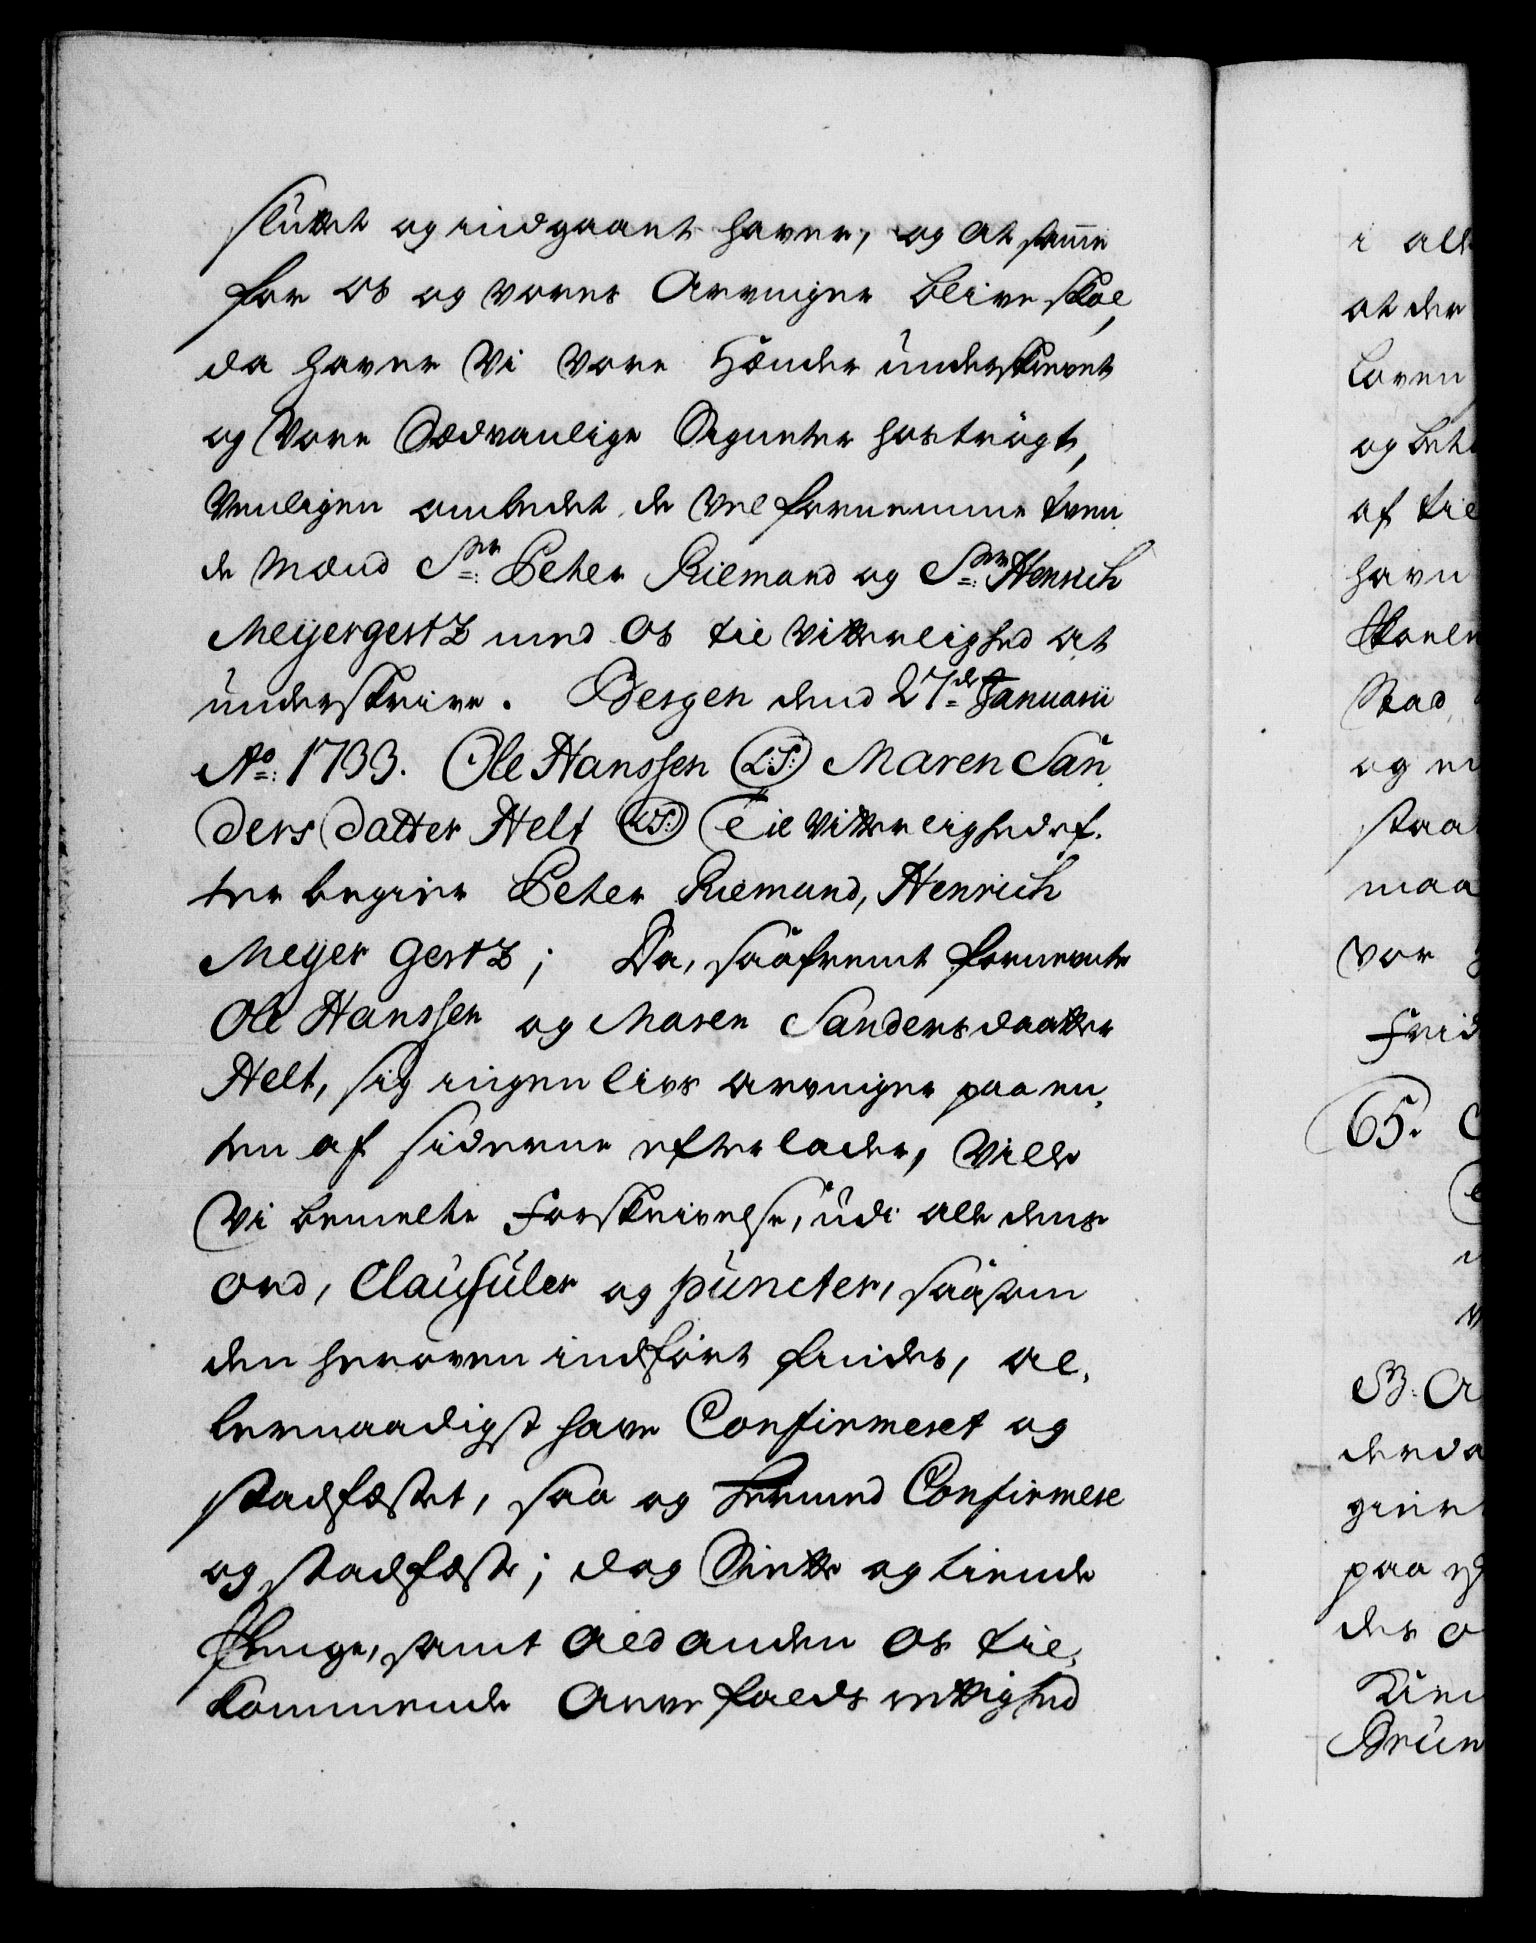 sluttet og indgaaet haver, og at samme
for os og vores Arvinger blive skal,
da haver Vi Vore Hænder underskrevet
og Vore Sædvanlige Signeter hoströgt,
Venligen ombedet de Velfornemme tven
de Mænd Sr: Peter Riemand og Sr: Henrich
Meyergertz med Os til Vitterlighed at
underskrive. Bergen dend 27de Januarii
Ao: 1733. Ole Hanssen (L:S:) Maren San
ders datter Helt (L:S:) Til Vitterlighed ef.
ter begier Peter Riemand, Henrich
Meyer Gertz; Da, saafremt fornevnte
Ole Hanssen og Maren Sandersdaatter
Helt, sig ingen livs arvinger paa en,
ten af siderne efterlader, Ville
Vi bemelte Forskrivelse, udi alle dens
Ord, Clausuler og puncter, saasom
den heroven indfört findes, al,
lernaadigst have Confirmeret og
stadfæstet, saa og hermed Confirmere
og stadfæste; dog Siette og tiende
Penge, samt Ald anden Os til,
kommende Arve falds rettighed
i all
at der
Loven
og beh
af til
havn
Stad
og
staa
maa
vor
Frid
65.
derda
paa